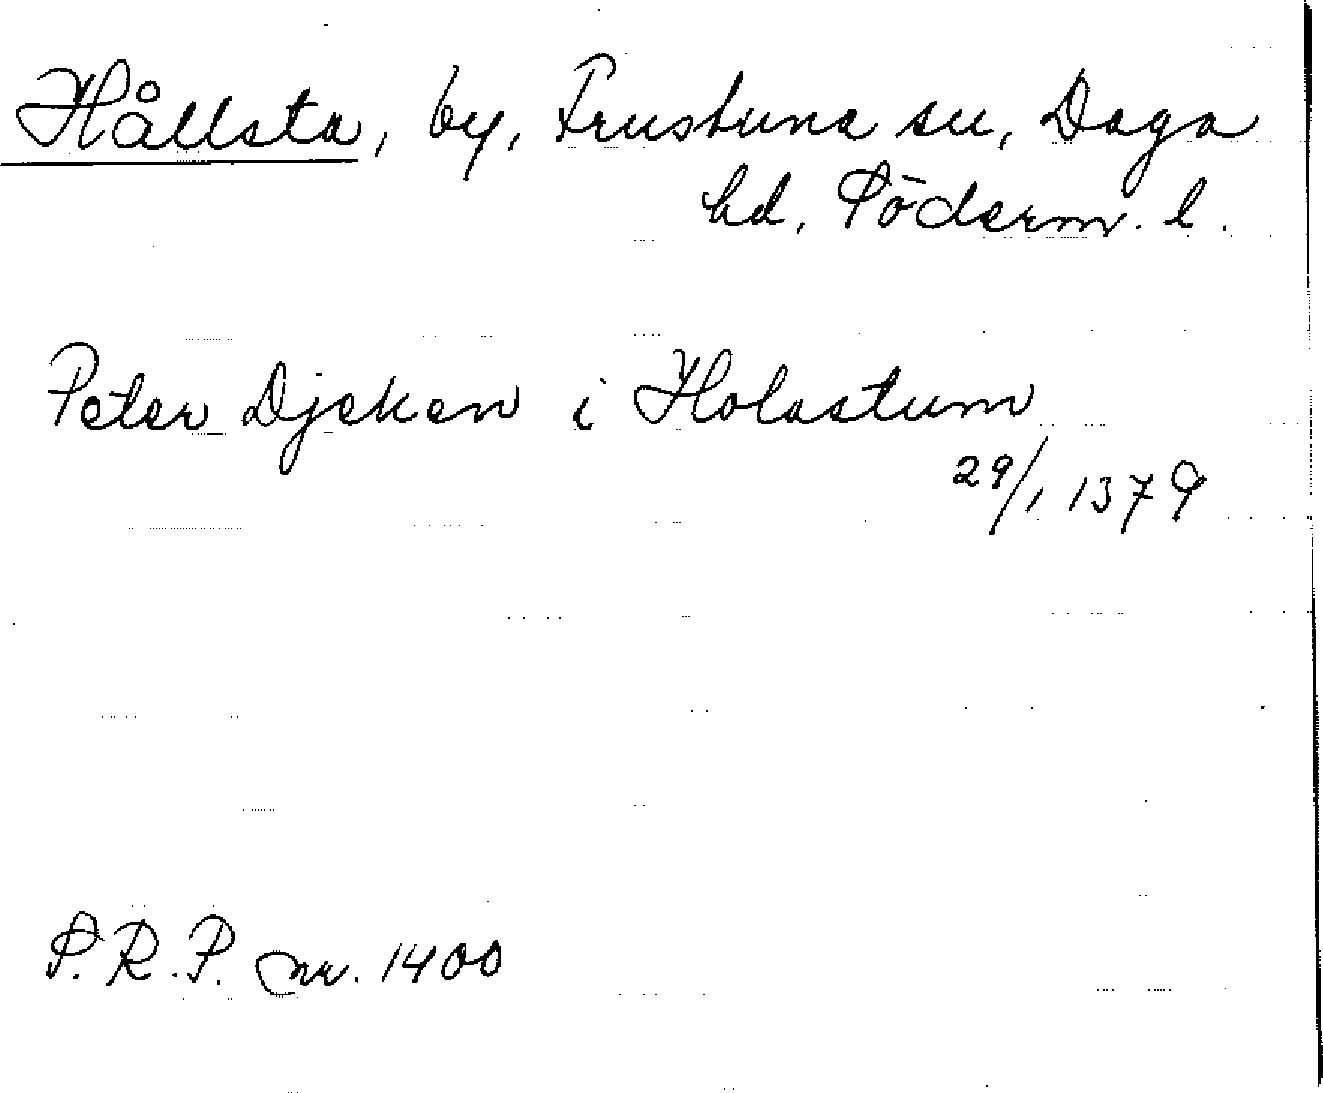 Hållsta, by, Frustuna sn, Daga
hd, Söderm. l.
Peter Djeken i Holastum
29/1 1379
S. R. P. nr. 1400